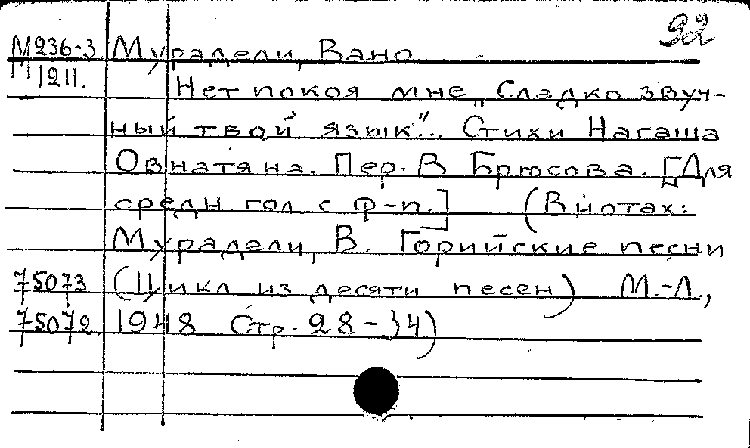 92
М236-3 Мурадели, Вано
П1211. Нет покоя мне „Сладко звуч-
ный твой язык"... Стихи Нагаша
Овнатяна. Пер. В Брюсова. [Для
средн гол с ф-п.] (В нотах:
Мурадели, В. Горийские песни
75073 (Цикл из десяти песен) М.-Л,
75072 1948 Стр. 28-34)